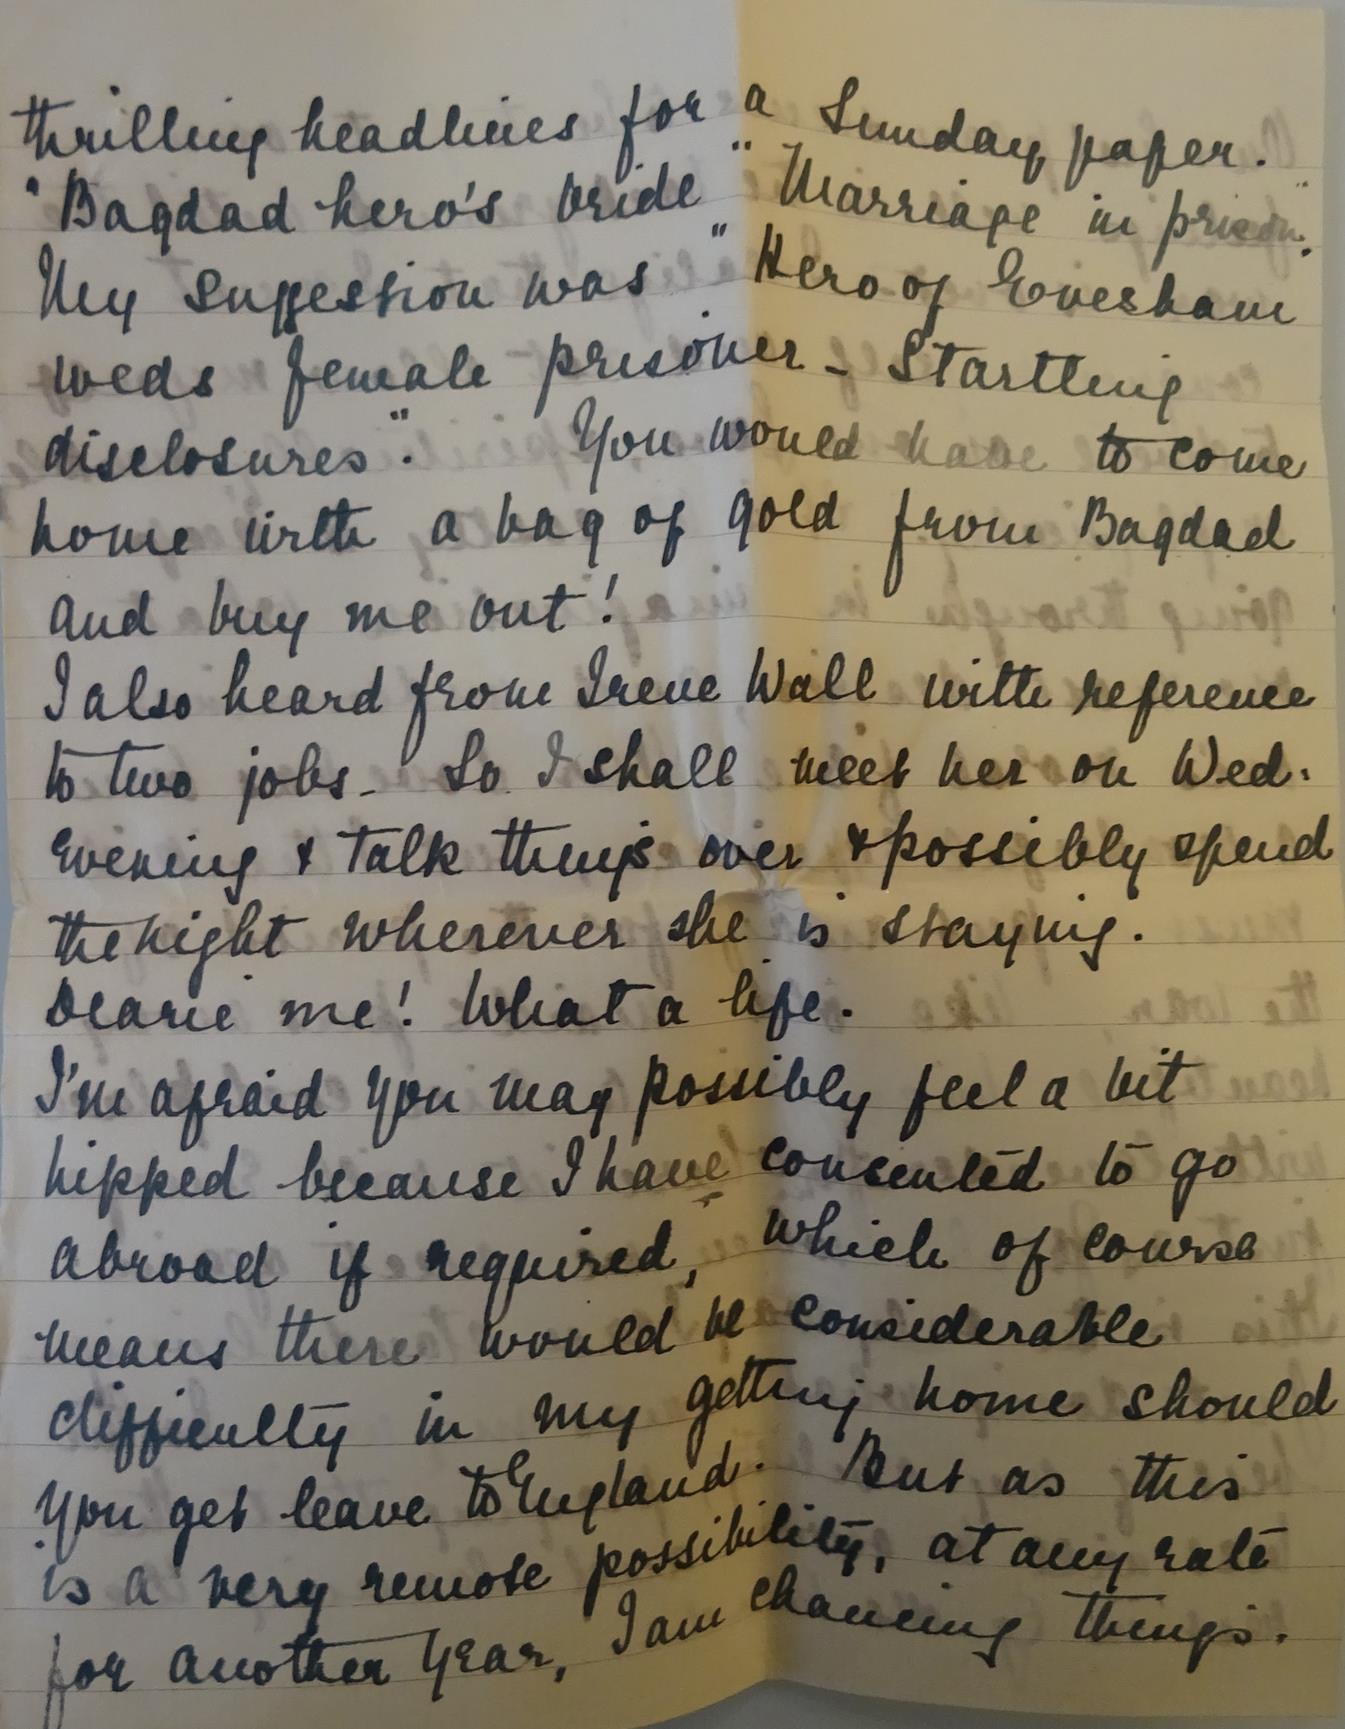 thrilling headlines for a Sunday paper.
"Bagdad hero's bride" "Marriage in prison".
My suggestion was "Hero of Evesham
weds female prisoner - Startling
disclosures". You would have to come
home with a bag of gold from Bagdad
and buy me out!
I also heard from Irene Wall with reference
to two jobs - So I shall meet her on Wed.
Evening & talk things over & possibly spend
the night wherever she is staying.
Dearie me! What a life.
I'm afraid you may possibly feel a bit
hipped because I have consented to go
abroad if required, which of course
means there would be considerable
difficulty in my getting home should
you get leave to England. But as this
is a very remote possibility, at any rate
for another year, I am chancing things.